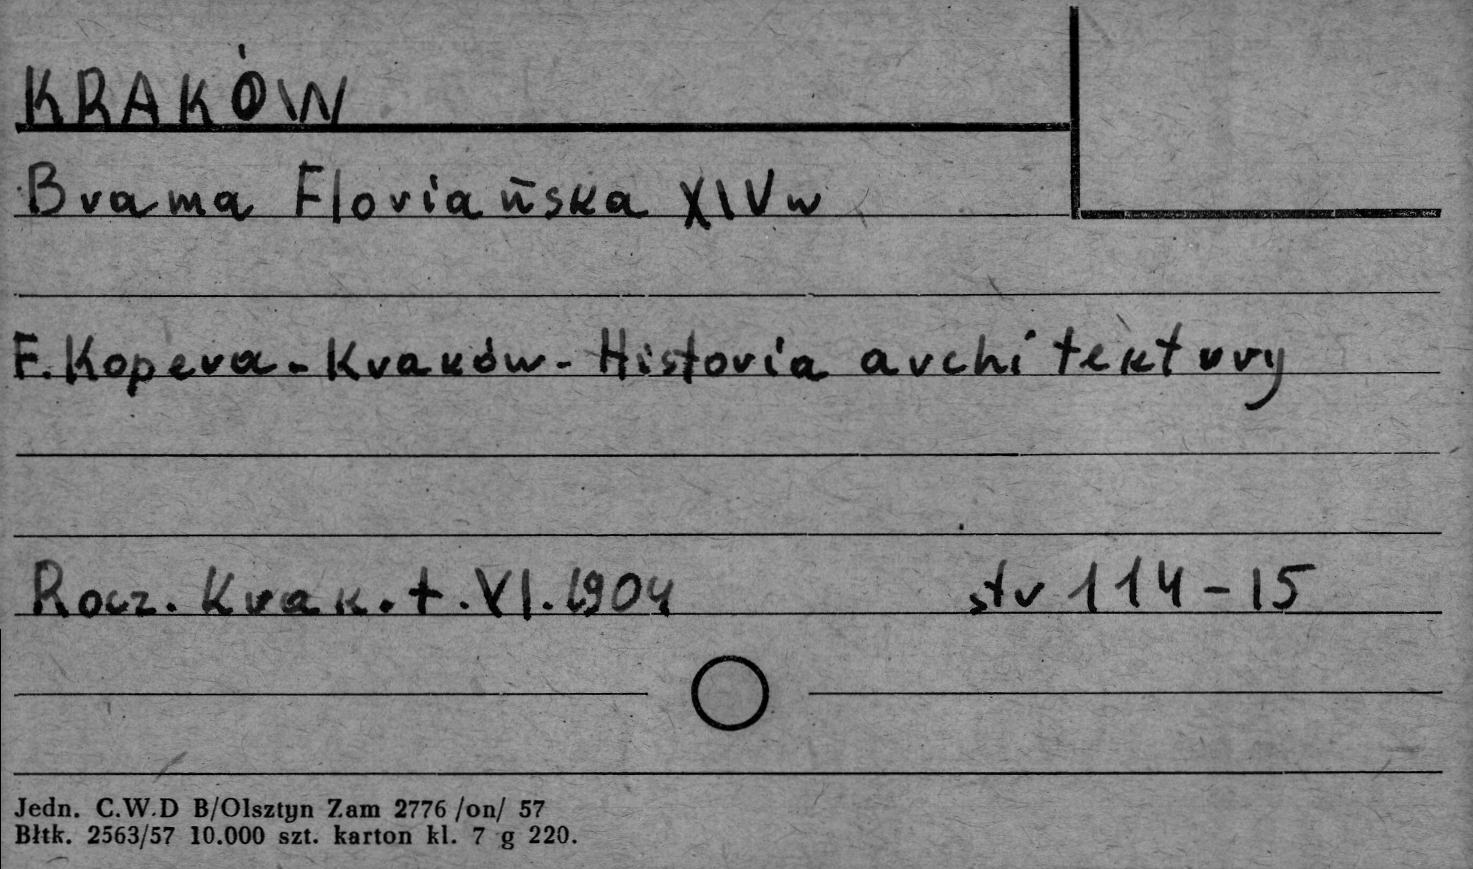 KRAKÓW
Brama Floriańska XIVw
F. Kopera - Kraków - Historia architektury
Rocz. Krak. t. VI. 1904 str 114-15
Jedn. C.W.D B/Olsztyn Zam 2776 /on/ 57
Błtk. 2563/57 10.000 szt. karton kl. 7 g 220.